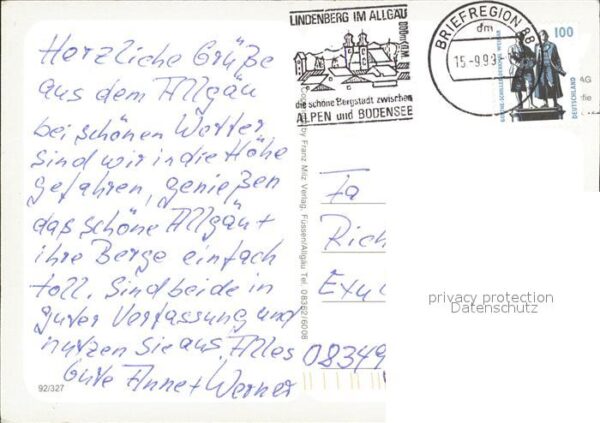 Herzliche Grüße
aus dem Allgäu
bei schönen Wetter
sind wir in die Höhe
gefahren, genießen
das schöne Allgäu +
ihre Berge einfach
toll. Sind beide in
guter Verfassung und
nutzen Sie aus. Alles
Gute Anne + Werner
92/327
Copyright by Franz Milz Verlag, Füssen/Allgäu Tel. 08362/6008
LINDENBERG IM ALLGÄU
800m ü.M.
die schöne Bergstadt zwischen
ALPEN und BODENSEE
BRIEFREGION 88
dm
15.-9.99
100
DEUTSCHLAND
GOETHE-SCHILLER-DENKMAL WEIMAR
AG
fie
Fa
Rich
Exu
08349
privacy protection
Datenschutz